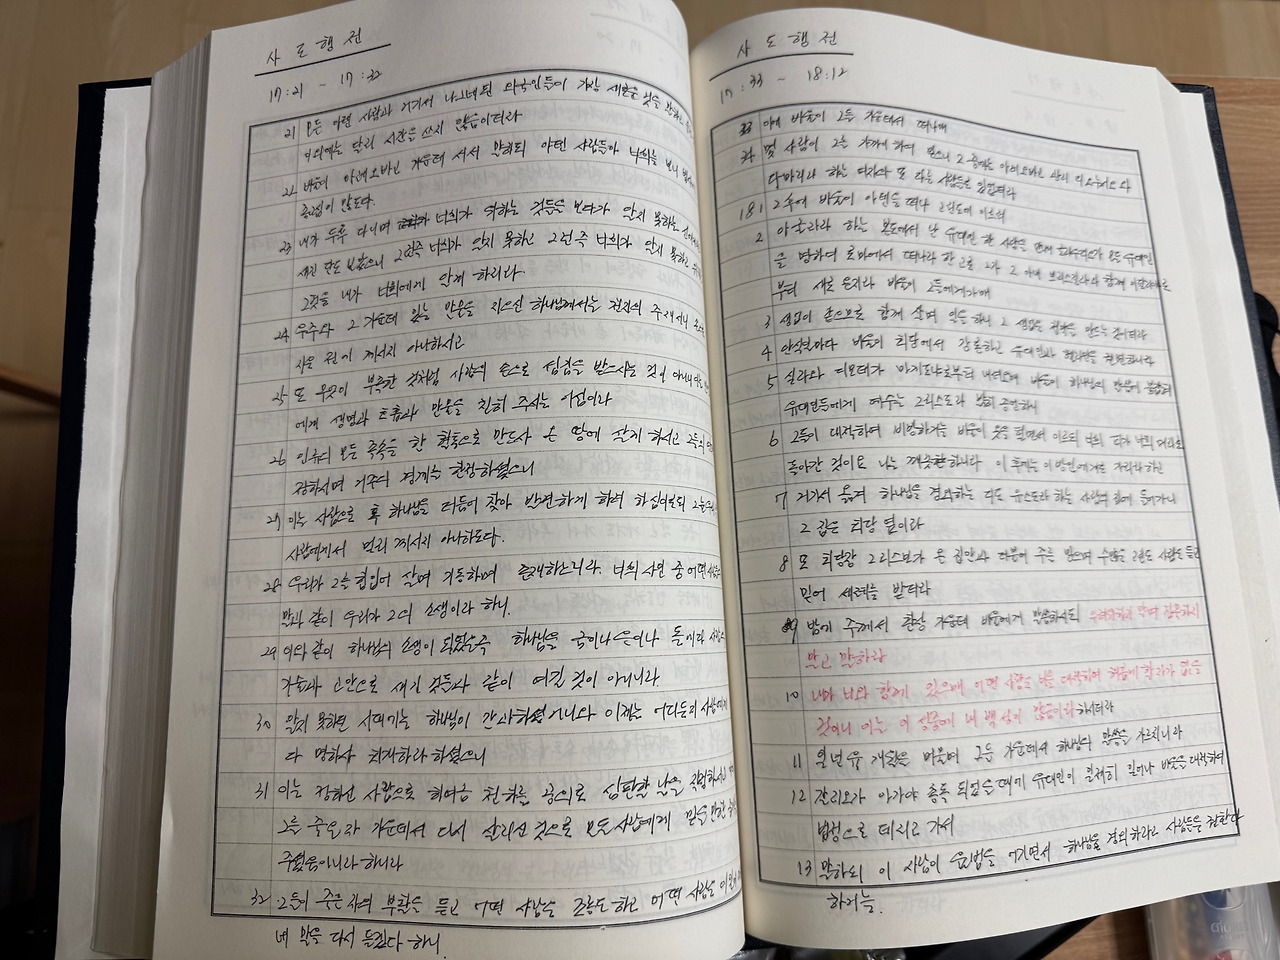 사도행전
17:21 ~ 17:32
21 모든 아덴 사람과 거기서 나그네 된 외국인들이 가장 새로운 것을 말하고
이외에는 달리 시간을 쓰지 않음이더라
22 바울이 아레오바고 가운데 서서 말하되 아덴 사람들아 너희를 보니
종교심이 많도다.
23 내가 두루 다니며 너희가 위하는 것들을 보다가 알지 못하는
새긴 단도 보았으니 그런즉 너희가 알지 못하고 그런즉 너희가 알지 못하고
그것을 내가 너희에게 알게 하리라.
24 우주와 그 가운데 있는 만물을 지으신 하나님께서는 천지의 주재시니
지은 전에 계시지 아니하시고
25 또 무엇이 부족한 것처럼 사람의 손으로 섬김을 받으시는 것이 아니니
에게 생명과 호흡과 만물을 친히 주시는 이심이라
26 인류의 모든 족속을 한 혈통으로 만드사 온 땅에 살게 하시고 그들의
정하시며 거주의 경계를 한정하셨으니
27 이는 사람으로 혹 하나님을 더듬어 찾아 발견하게 하려 하심이로되
사람에게서 멀리 계시지 아니하도다.
28 우리가 그를 힘입어 살며 기동하며 존재하느니라. 너희 시인 중 어떤
말과 같이 우리가 그의 소생이라 하니.
29 이와 같이 하나님의 소생이 되었은즉 하나님을 금이나 은이나 돌에다
기술과 고안으로 새긴 것들과 같이 여길 것이 아니니라.
30 알지 못하던 시대에는 하나님이 간과하셨거니와 이제는 어디든지 사람에게
다 명하사 회개하라 하셨으니
31 이는 정하신 사람으로 하여금 천하를 공의로 심판할 날을 작정하시고
그를 죽은 자 가운데서 다시 살리신 것으로 모든 사람에게 믿을 만한
주셨음이니라 하니라
32 그들이 죽은 자의 부활을 듣고 어떤 사람은 조롱도 하고 어떤 사람은
네 말을 다시 듣겠다 하니
사도행전
17:33 ~ 18:12
33 이에 바울이 그들 가운데서 떠나매
34 몇 사람이 그를 가까이하여 믿으니 그 중에는 아레오바고 관리 디오누시오와
다마리라 하는 여자와 또 다른 사람들도 있었더라
18 1 그 후에 바울이 아덴을 떠나 고린도에 이르러
2 아굴라라 하는 본도에서 난 유대인 한 사람을 만나니 글라우디오가 모든 유대인
을 명하여 로마에서 떠나라 한 고로 그가 그 아내 브리스길라와 함께 이달리야로
부터 새로 온지라 바울이 그들에게 가매
3 생업이 같으므로 함께 살며 일을 하니 그 생업은 천막을 만드는 것이더라
4 안식일마다 바울이 회당에서 강론하고 유대인과 헬라인을 권면하니라
5 실라와 디모데가 마게도냐로부터 내려오매 바울이 하나님의 말씀에 붙잡혀
유대인들에게 예수는 그리스도라 밝히 증언하니
6 그들이 대적하여 비방하거늘 바울이 옷을 털면서 이르되 너희 피가 너희 머리로
돌아갈 것이요 나는 깨끗하니라 이 후에는 이방인에게로 가리라 하고
7 거기서 옮겨 하나님을 경외하는 디도 유스도라 하는 사람의 집에 들어가니
그 집은 회당 옆이라
8 또 회당장 그리스보가 온 집안과 더불어 주를 믿으며 수많은 고린도 사람도 듣고
믿어 세례를 받더라
9 밤에 주께서 환상 가운데 바울에게 말씀하시되 두려워하지 말며 침묵하지
말고 말하라
10 내가 너와 함께 있으매 어떤 사람도 너를 대적하여 해롭게 할 자가 없을
것이니 이는 이 성중에 내 백성이 많음이라 하시더라
11 일 년 육 개월을 머물며 그들 가운데서 하나님의 말씀을 가르치니라
12 갈리오가 아가야 총독 되었을 때에 유대인이 일제히 일어나 바울을 대적하여
법정으로 데리고 가서
13 말하되 이 사람이 율법을 어기면서 하나님을 경외하라고 사람들을 권한다
하거늘.